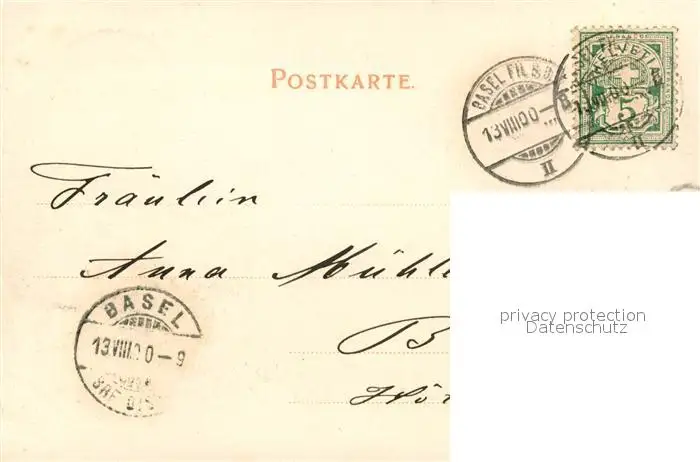 POSTKARTE.
BASEL FIL. S.B.
13.VIII.00–
II
HELVETIA
5
II
Fräulein
Anna Mühle
B
BASEL
13.VIII.00–9
privacy protection
Datenschutz